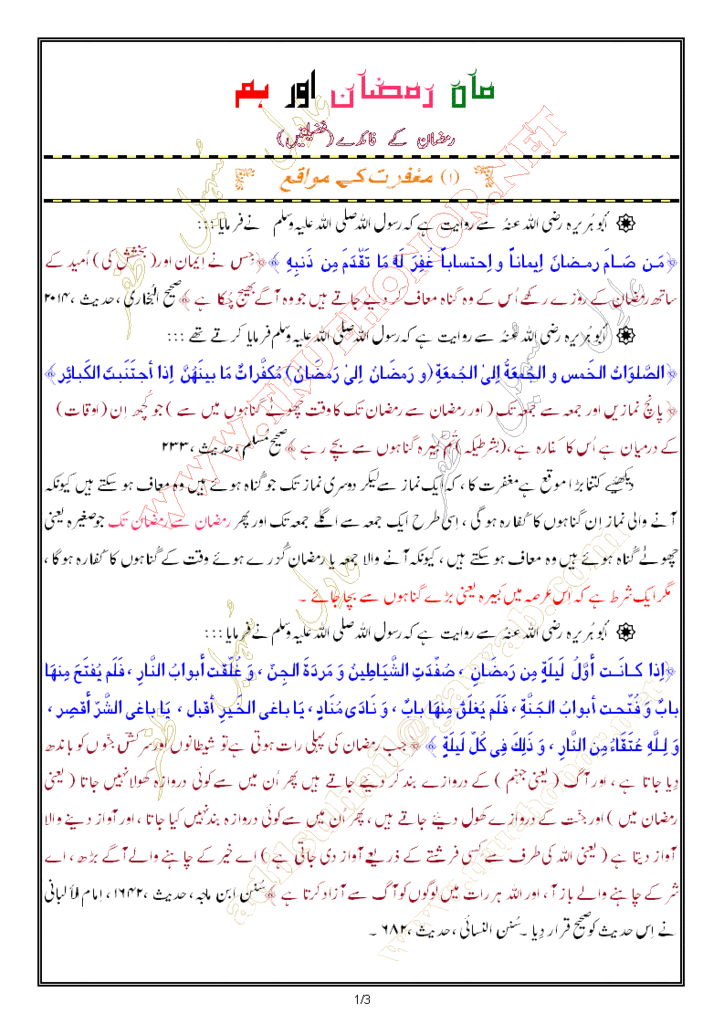 ماہ رمضان اور ہم
رمضان کے فائدے (فضیلتیں)
(۱) مغفرت کے مواقع
ابو ہُریرہ رضی اللہ عنہُ سے روایت ہے کہ رسول اللہ صلی اللہ علیہ وسلم نے فرمایا :::
﴿ مَن صَامَ رمضانَ اِیماناً و اِحتساباً غُفِرَ لَہُ مَا تَقَّدمَ مِن ذَنبِہِ ﴾ ﴿ جس نے اِیمان اور ( بخشش کی ) اُمید کے
ساتھ رمضان کے روزے رکھے اُس کے وہ گناہ معاف کر دیے جاتے ہیں جو وہ آگے بھیج چکا ہے ﴾ صحیح البُخاری ، حدیث ، ۲۰۱۴
ابو ہُریرہ رضی اللہ عنہُ سے روایت ہے کہ رسول اللہ صلی اللہ علیہ وسلم فرمایا کرتے تھے :::
﴿ الصَّلوَاتُ الخَمس و الجُمعَۃُ اِلیٰ الجُمعَۃِ (و رمضَان اِلیٰ رَمضَان) مُکفَّراتٌ مَا بینَھُنَّ اِذا أجتَنَبتَ الکَبائِر ﴾
﴿ پانچ نمازیں اور جمعہ سے جمعہ تک ( اور رمضان سے رمضان تک کا وقت چھوٹے گناہوں میں سے ) جو کُچھ اِن ( اوقات )
کے درمیان ہے اُس کا کفارہ ہے ، (بشرطیکہ ) تُم کبیرہ گناہوں سے بچے رہے ﴾ صحیح مُسلم ، حدیث ، ۲۳۳
دیکھیئے کتنا بڑا موقع ہے مغفرت کا ، کہ ایک نماز سے لیکر دوسری نماز تک جو گناہ ہوئے ہیں وہ معاف ہو سکتے ہیں کیونکہ
آنے والی نماز اِن گناہوں کا کفارہ ہو گی ، اِسی طرح ایک جمعہ سے اگلے جمعہ تک اور پھر رمضان سے رمضان تک جو صغیرہ یعنی
چھوٹے گناہ ہوئے ہیں وہ معاف ہو سکتے ہیں ، کیونکہ آنے والا جمعہ یا رمضان گُزرے ہوئے وقت کے گناہوں کا کفارہ ہو گا ،
مگر ایک شرط ہے کہ اِس عرصہ میں کبیرہ یعنی بڑے گناہوں سے بچا جائے ۔
ابو ہُریرہ رضی اللہ عنہُ سے روایت ہے کہ رسول اللہ صلی اللہ علیہ وسلم نے فرمایا :::
﴿ اِذا کَانَت أوَّلُ لَیلَۃٍ مِن رَمضَانِ ، صُفِّدَتِ الشَّیَاطِینُ وَ مَردَۃُ الجِنّ ، وَ غُلِّقَت أبوابُ النَّارِ ، فَلَم یُفتَحَ مِنھَا
بابٌ وَ فُتِّحت أبوابُ الجَنَّۃِ ، فَلَم یَغلَق مِنھَا بابٌ ، وَ نَادَی مُنَادٍ ، یَا باغی الخَیرِ أقبل ، یَا باغی الشَّرِّ أقصِر ،
وَ لِلّٰہِ عُتَقَاءُ مِنَ النَّارِ ، وَ ذَلِکَ فِی کُلِّ لَیلَۃٍ ﴾ ﴿ جب رمضان کی پہلی رات ہوتی ہے تو شیطانوں اور سر کش جنّوں کو باندھ
دِیا جاتا ہے ، اور آگ ( یعنی جہنم ) کے دروازے بند کر دئیے جاتے ہیں پھر اُن میں سے کوئی دروازہ کھولا نہیں جاتا ( یعنی
رمضان میں ) اور جنّت کے دروازے کھول دیے جاتے ہیں ، پھر اُن میں سے کوئی دروازہ بند نہیں کیا جاتا ، اور آواز دینے والا
آواز دیتا ہے ( یعنی اللہ کی طرف سے کسی فرشتے کے ذریعے آواز دی جاتی ہے ) اے خیر کے چاہنے والے آگے بڑھ ، اے
شر کے چاہنے والے باز آ ، اور اللہ ہر رات میں لوگوں کو آگ سے آزاد کرتا ہے ﴾ سُنن ابن ماجہ ، حدیث ، ۱۶۴۲ ، اِمام الألبانی
نے اِس حدیث کو صحیح قرار دِیا ۔ سُنن النسائی ، حدیث ، ۶۸۲ ۔
1/3